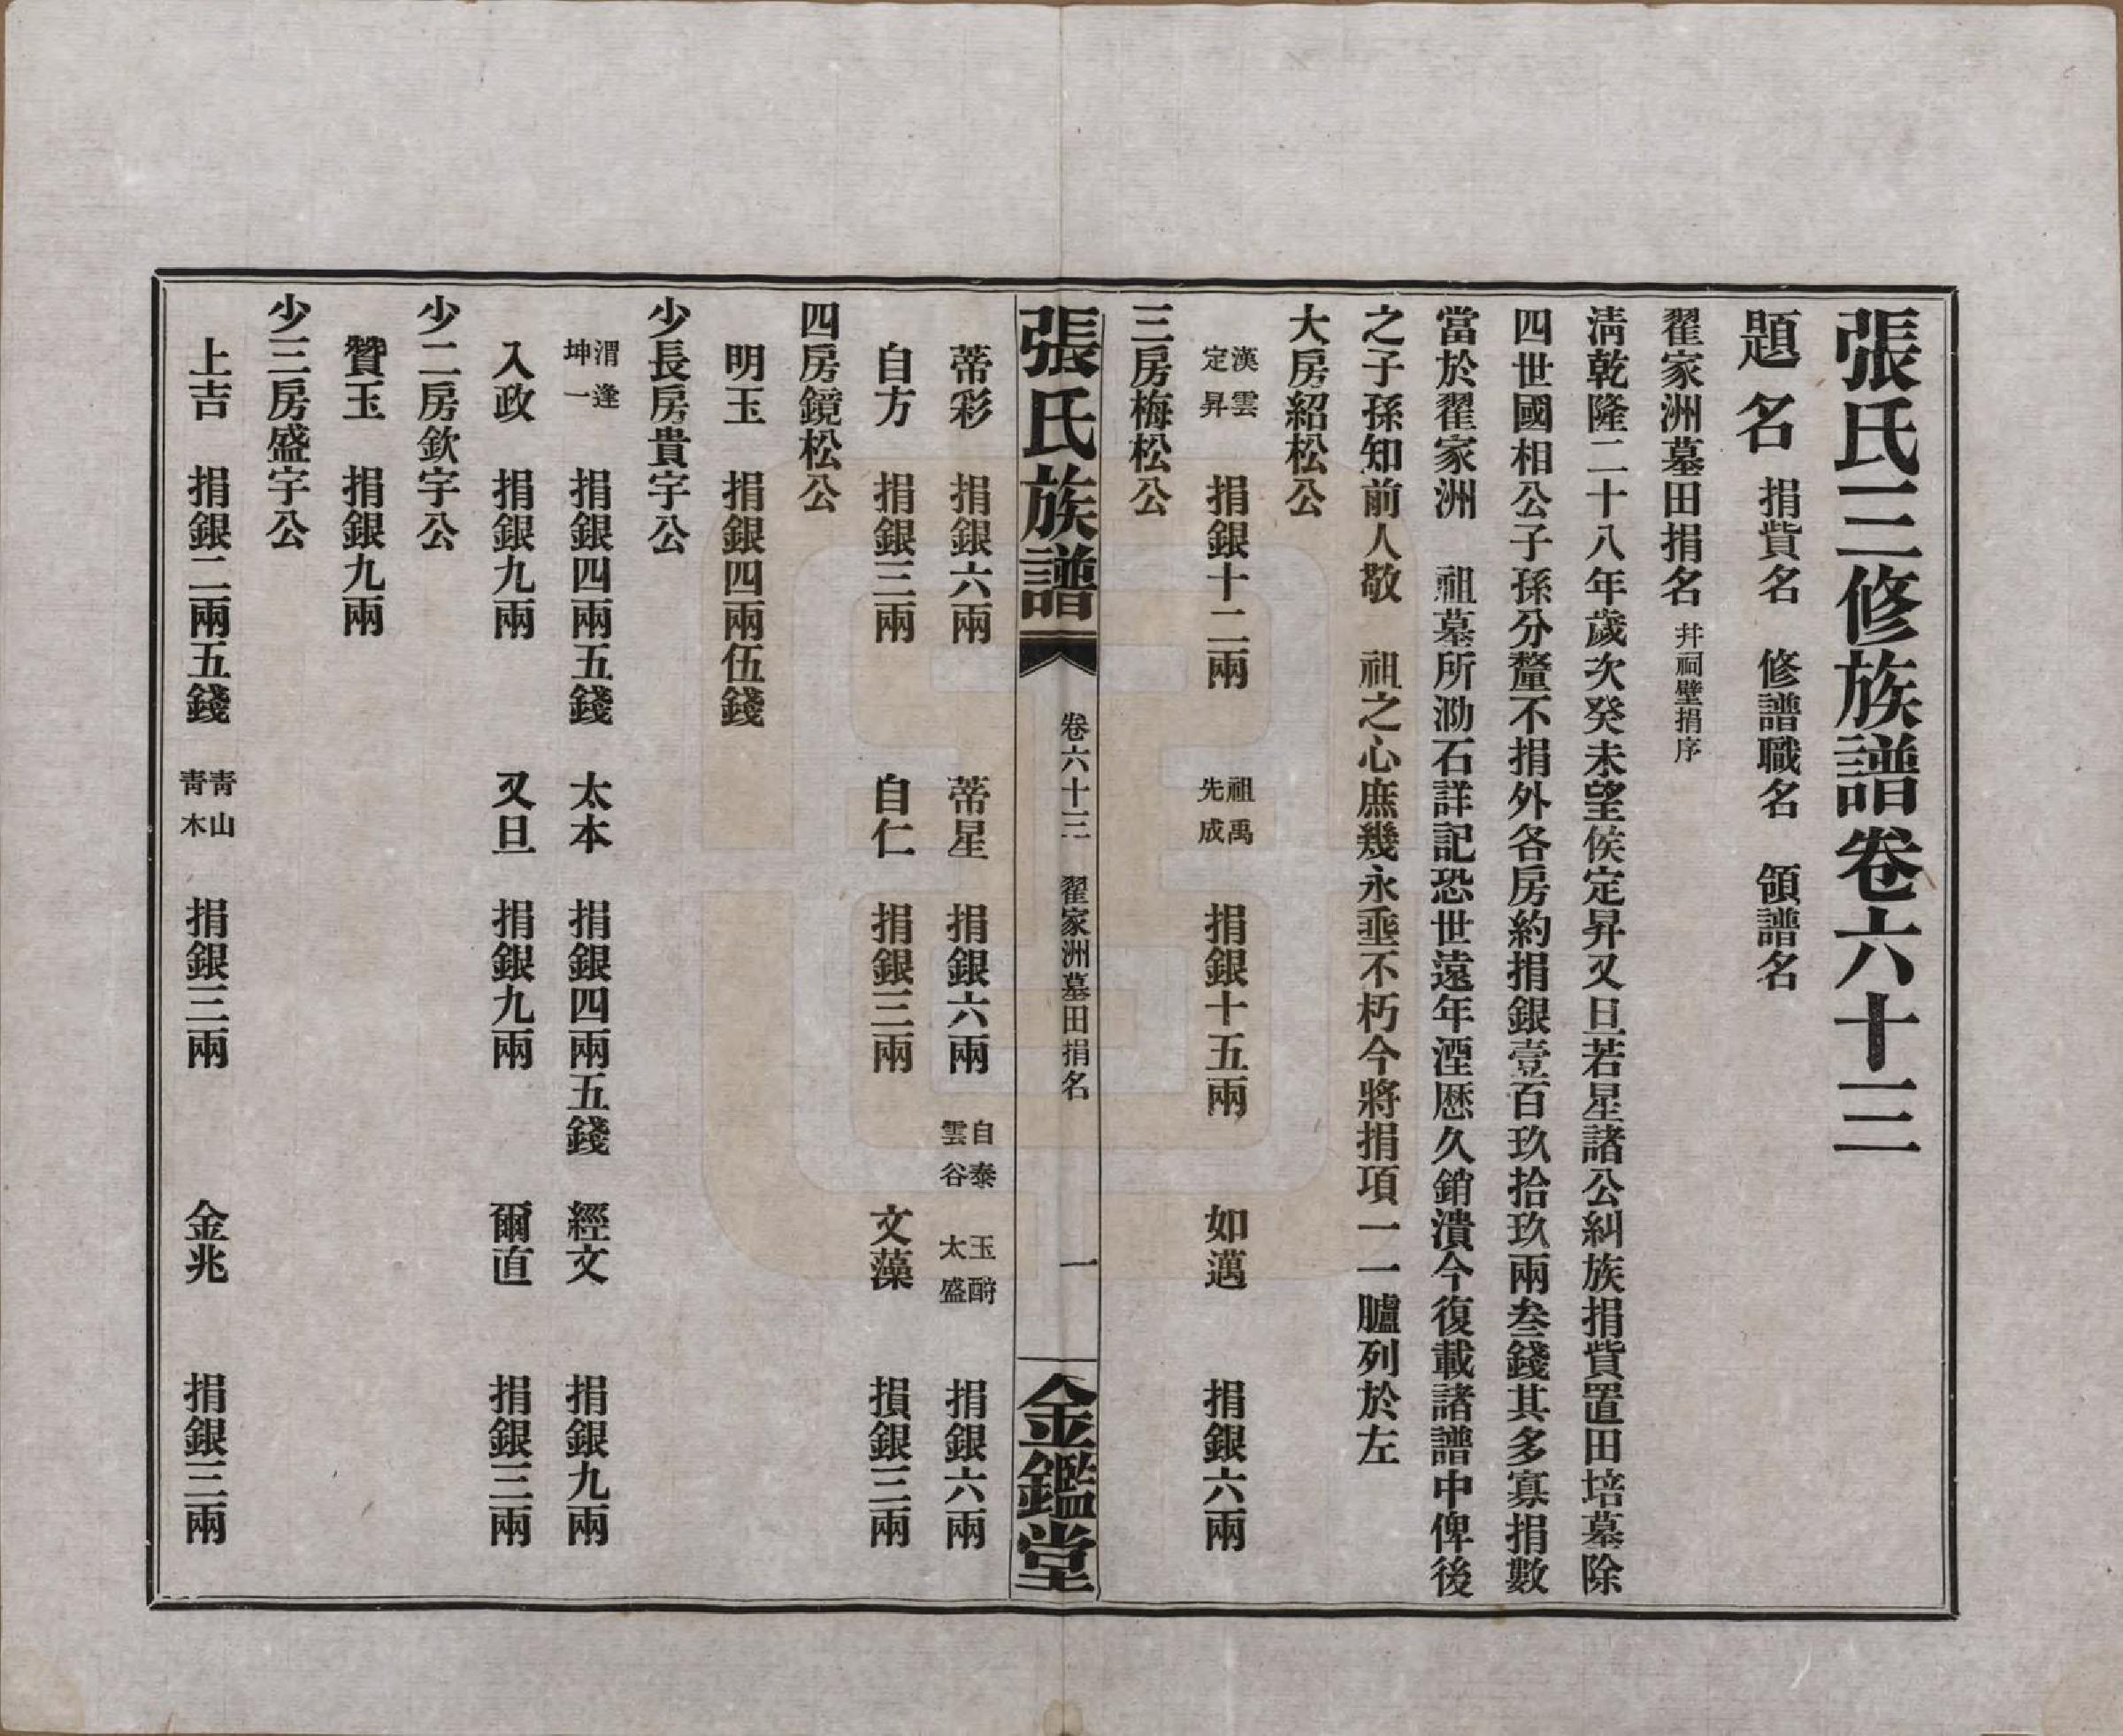 張氏三修族譜卷六十三
題名 捐貲名 修譜職名 領譜名
翟家洲墓田捐名 幷祠壁捐序
淸乾隆二十八年歲次癸未望侯定昇又旦若星諸公糾族捐貲置田培墓除
四世國相公子孫分釐不捐外各房約捐銀壹百玖拾玖兩叁錢其多寡捐數
當於翟家洲 祖墓所泐石詳記恐世遠年湮歷久銷潰今復載諸譜中俾後
之子孫知前人敬 祖之心庶幾永垂不朽今將捐項一一臚列於左
大房紹松公
漢雲 定昇 捐銀十二兩 祖禹 先成 捐銀十五兩 如邁 捐銀六兩
三房梅松公
張氏族譜 卷六十三 翟家洲墓田捐名 一 金鑑堂
蒂彩 捐銀六兩 蒂星 捐銀六兩 自泰 雲谷 玉酹 太盛 捐銀六兩
自方 捐銀三兩 自仁 捐銀三兩 文藻 損銀三兩
四房鏡松公
明玉 捐銀四兩伍錢
少長房貴宇公
渭逢 坤一 捐銀四兩五錢 太本 捐銀四兩五錢 經文 捐銀九兩
入政 捐銀九兩 又旦 捐銀九兩 爾直 捐銀三兩
少二房欽宇公
贊玉 捐銀九兩
少三房盛宇公
上吉 捐銀二兩五錢 靑山 靑木 捐銀三兩 金兆 捐銀三兩